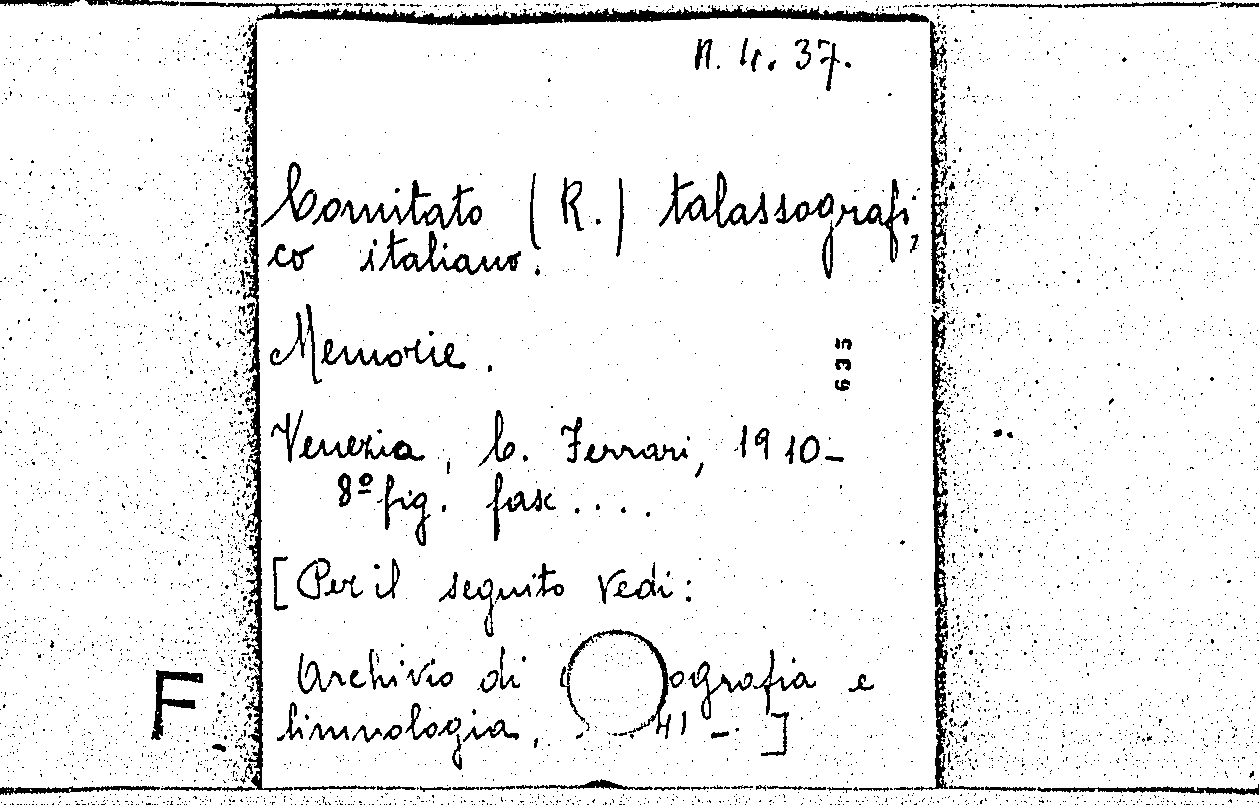 R. 4. 37.
Comitato (R.) talassografi,
co italiano.
Memorie.
635
Venezia, C. Ferrari, 1910-
8º fig. fasc....
[Per il seguito vedi:
Archivio di ografia e
limnologia, 41 -. ]
F